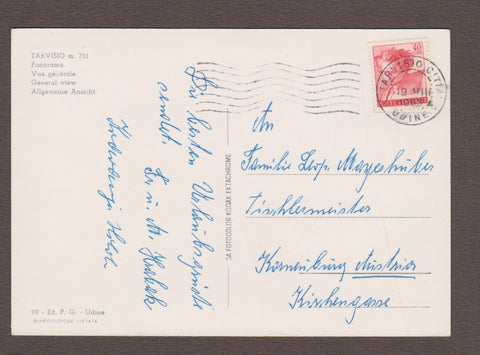 TARVISIO m. 751
Panorama
Vue générale
General view
Allgemeine Ansicht
Die besten Urlaubsgrüße
sendet
Fr. u. M.
An
Familie Leop. Mayerhuber
Tischlermeister
Korneuburg Austria
Kirchengasse
DA FOTOCOLOR KODAK EKTACHROME
99 - Ed. P. G. - Udine
RIPRODUZIONE VIETATA
40
TARVISIO CITTA
19 VIII
UDINE